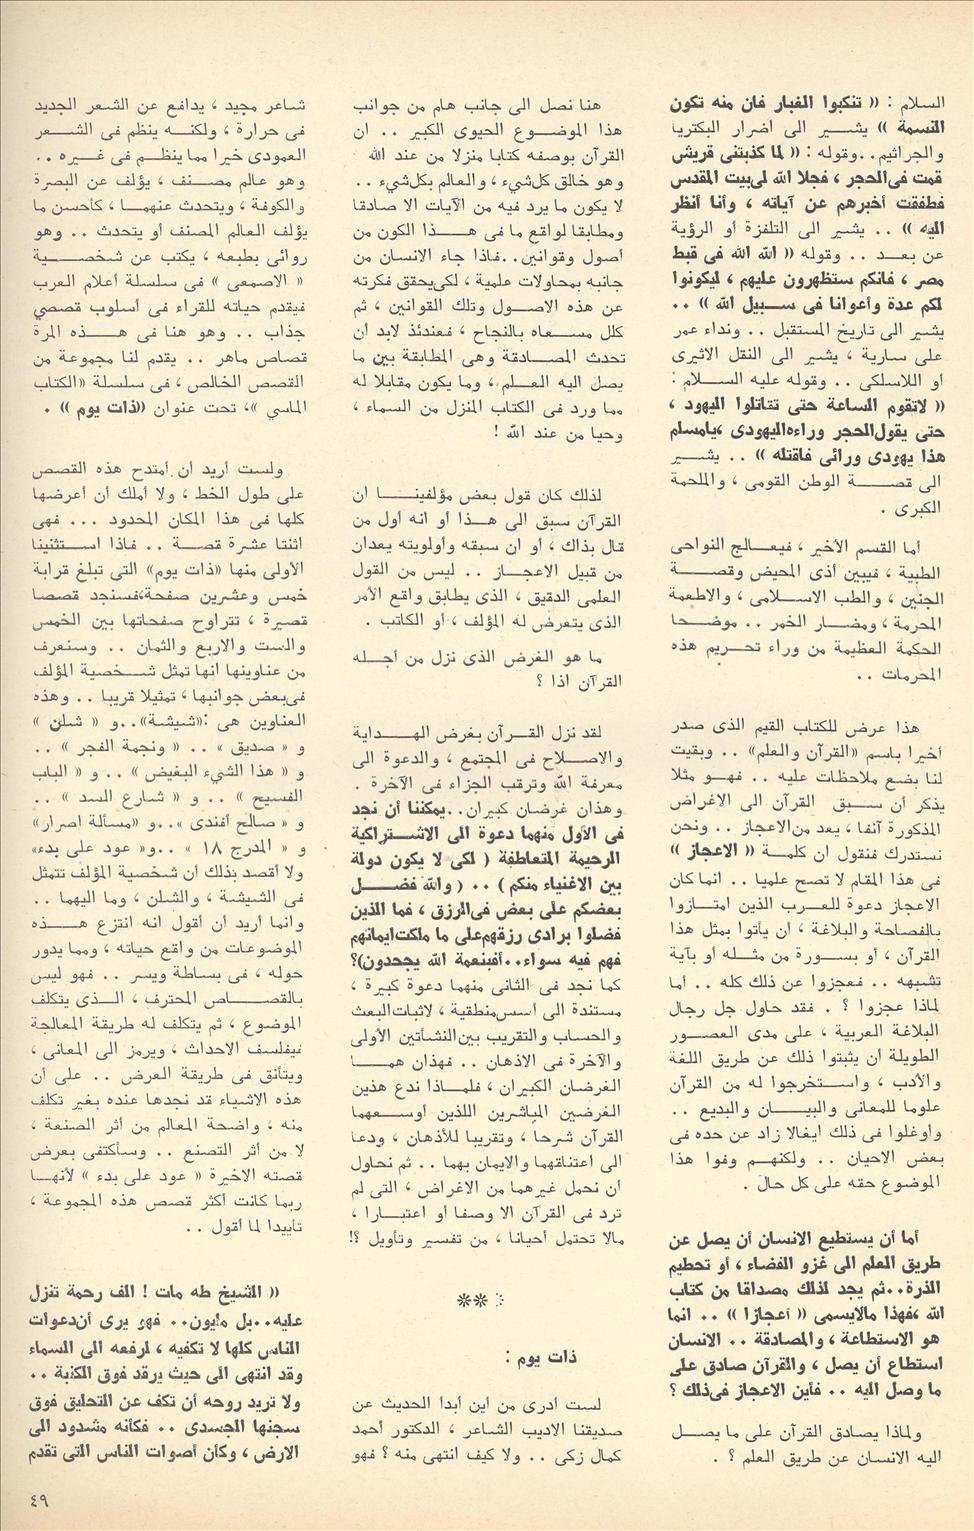 السلام : « تنكبوا الغبار فان منه تكون
النسمة » يشير الى اضرار البكتريا
والجراثيم..وقوله : « لما كذبتنى قريش
قمت فى الحجر ، فجلا الله لى بيت المقدس
فطفقت أخبرهم عن آياته ، وأنا أنظر
اليه » .. يشير الى التلفزة أو الرؤية
عن بعد .. وقوله « الله الله فى قبط
مصر ، فانكم ستظهرون عليهم ، ليكونوا
لكم عدة وأعوانا فى سبيل الله » ..
يشير الى تاريخ المستقبل .. ونداء عمر
على سارية ، يشير الى النقل الاثيرى
أو اللاسلكى .. وقوله عليه السلام :
« لاتقوم الساعة حتى تقاتلوا اليهود ،
حتى يقول الحجر وراءه اليهودى ، يامسلم
هذا يهودى ورائى فاقتله » .. يشير
الى قصة الوطن القومى ، والملحمة
الكبرى .
أما القسم الأخير ، فيعالج النواحى
الطبية ، فيبين أذى المحيض وقصة
الجنين ، والطب الاسلامى ، والاطعمة
المحرمة ، ومضار الخمر .. موضحا
الحكمة العظيمة من وراء تحريم هذه
المحرمات ..
هذا عرض للكتاب القيم الذى صدر
أخيرا باسم «القرآن والعلم» .. وبقيت
لنا بضع ملاحظات عليه .. فهو مثلا
يذكر أن سبق القرآن الى الاغراض
المذكورة آنفا ، يعد من الاعجاز .. ونحن
نستدرك فنقول ان كلمة « الاعجاز »
فى هذا المقام لا تصح علميا .. انما كان
الاعجاز دعوة للعرب الذين امتازوا
بالفصاحة والبلاغة ، أن يأتوا بمثل هذا
القرآن ، أو بسورة من مثله أو بآية
تشبهه .. فعجزوا عن ذلك كله .. أما
لماذا عجزوا ؟ . فقد حاول جل رجال
البلاغة العربية ، على مدى العصور
الطويلة ان يثبتوا ذلك عن طريق اللغة
والأدب ، واستخرجوا له من القرآن
علوما للمعانى والبيان والبديع ..
وأوغلوا فى ذلك ايغالا زاد عن حده فى
بعض الاحيان .. ولكنهم وفوا هذا
الموضوع حقه على كل حال .
أما أن يستطيع الانسان أن يصل عن
طريق العلم الى غزو الفضاء ، أو تحطيم
الذرة..ثم يجد لذلك مصداقا من كتاب
الله ،فهذا مالايسمى « أعجازا » .. انما
هو الاستطاعة ، والمصادقة .. الانسان
استطاع أن يصل ، والقرآن صادق على
ما وصل اليه .. فأين الاعجاز فى ذلك ؟
ولماذا يصادق القرآن على ما يصل
اليه الانسان عن طريق العلم ؟ .
هنا نصل الى جانب هام من جوانب
هذا الموضوع الحيوى الكبير .. ان
القرآن بوصفه كتابا منزلا من عند الله
وهو خالق كل شيء ، والعالم بكل شيء ..
لا يكون ما يرد فيه من الآيات الا صادقا
ومطابقا لواقع ما فى هذا الكون من
أصول وقوانين..فاذا جاء الانسان من
جانبه بمحاولات علمية ، لكى يحقق فكرته
عن هذه الاصول وتلك القوانين ، ثم
كلل مسعاه بالنجاح ، فعندئذ لابد أن
تحدث المصادقة وهى المطابقة بين ما
يصل اليه العلم ، وما يكون مقابلا له
مما ورد فى الكتاب المنزل من السماء ،
وحيا من عند الله !
لذلك كان قول بعض مؤلفينا ان
القرآن سبق الى هذا أو انه أول من
قال بذاك ، أو ان سبقه وأولويته يعدان
من قبيل الاعجاز .. ليس من القول
العلمى الدقيق ، الذى يطابق واقع الأمر
الذى يتعرض له المؤلف ، أو الكاتب .
ما هو الغرض الذى نزل من أجله
القرآن اذا ؟
لقد نزل القرآن بغرض الهداية
والاصلاح فى المجتمع ، والدعوة الى
معرفة الله وترقب الجزاء فى الآخرة .
وهذان غرضان كبيران..يمكننا أن نجد
فى الأول منهما دعوة الى الاشتراكية
الرحيمة المتعاطفة ( لكى لا يكون دولة
بين الاغنياء منكم ) .. ( والله فضل
بعضكم على بعض فى الرزق ، فما الذين
فضلوا برادى رزقهم على ما ملكت ايمانهم
فهم فيه سواء..أفبنعمة الله يجحدون)؟
كما نجد فى الثانى منهما دعوة كبيرة ،
مستندة الى أسس منطقية ، لاثبات البعث
والحساب والتقريب بين النشأتين الأولى
والآخرة فى الاذهان .. فهذان هما
الغرضان الكبيران ، فلماذا ندع هذين
الغرضين المباشرين اللذين أوسعهما
القرآن شرحا ، وتقريبا للأذهان ، ودعا
الى اعتناقهما والايمان بهما .. ثم نحاول
أن نحمل غيرهما من الاغراض ، التى لم
ترد فى القرآن الا وصفا أو اعتبارا ،
مالا تحتمل أحيانا ، من تفسير وتأويل ؟!
**
ذات يوم :
لست ادرى من اين أبدا الحديث عن
صديقنا الاديب الشاعر ، الدكتور أحمد
كمال زكى .. ولا كيف انتهى منه ؟ فهو
شاعر مجيد ، يدافع عن الشعر الجديد
فى حرارة ، ولكنه ينظم فى الشعر
العمودى خيرا مما ينظم فى غيره ..
وهو عالم مصنف ، يؤلف عن البصرة
والكوفة ، ويتحدث عنهما ، كأحسن ما
يؤلف العالم المصنف أو يتحدث .. وهو
روائى بطبعه ، يكتب عن شخصية
« الاصمعى » فى سلسلة أعلام العرب
فيقدم حياته للقراء فى أسلوب قصصي
جذاب .. وهو هنا فى هذه المرة
قصاص ماهر .. يقدم لنا مجموعة من
القصص الخالص ، فى سلسلة «الكتاب
الماسي »، تحت عنوان «ذات يوم » .
ولست أريد أن أمتدح هذه القصص
على طول الخط ، ولا أملك أن أعرضها
كلها فى هذا المكان المحدود ... فهى
أثنتا عشرة قصة .. فاذا استثنينا
الأولى منها «ذات يوم» التى تبلغ قرابة
خمس وعشرين صفحة،فسنجد قصصا
قصيرة ، تتراوح صفحاتها بين الخمس
والست والاربع والثمان .. وسنعرف
من عناوينها انها تمثل شخصية المؤلف
فى بعض جوانبها ، تمثيلا قريبا .. وهذه
العناوين هى :«شيشة»..و « شلن »
و « صديق » .. « ونجمة الفجر » ..
و « هذا الشيء البغيض » .. و « الباب
الفسيح » .. و « شارع السد » ..
و « صالح أفندى »..و «مسألة اصرار»
و « المدرج ١٨ » ..و« عود على بدء»
ولا أقصد بذلك أن شخصية المؤلف تتمثل
فى الشيشة ، والشلن ، وما اليهما ..
وانما أريد أن أقول انه انتزع هذه
الموضوعات من واقع حياته ، ومما يدور
حوله ، فى بساطة ويسر .. فهو ليس
بالقصاص المحترف ، الذى يتكلف
الموضوع ، ثم يتكلف له طريقة المعالجة
فيفلسف الاحداث ، ويرمز الى المعانى ،
ويتأنق فى طريقة العرض .. على أن
هذه الاشياء قد نجدها عنده بغير تكلف
منه ، واضحة المعالم من أثر الصنعة ،
لا من أثر التصنع .. وسأكتفى بعرض
قصته الاخيرة « عود على بدء » لأنها
ربما كانت أكثر قصص هذه المجموعة ،
تأييدا لما أقول ..
« الشيخ طه مات ! الف رحمة تنزل
عليه..بل مليون.. فهو يرى أن دعوات
الناس كلها لا تكفيه ، لرفعه الى السماء
وقد انتهى الى حيث يرقد فوق الكنبة ..
ولا تريد روحه أن تكف عن التحليق فوق
سجنها الجسدى .. فكأنه مشدود الى
الارض ، وكأن أصوات الناس التى تقدم
٤٩